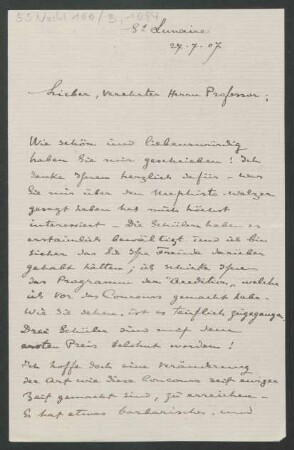 SS Nachl 100/B, 1, 1684
St Lunaire
27.7.07
Lieber, verehrter Herr Professor;
Wie schön und liebenswürdig
haben Sie mir geschrieben! Ich
danke Ihnen herzlich dafür – was
Sie mir über den Mephisto-Walzer
gesagt haben hat mich höchst
interessiert – Die Schüler haben es
erstaunlich bewältigt und ich bin
sicher das Sie Ihre Freude darüber
gehabt hätten; ich schicke Ihnen
das Programm der "Audition", welche
ich vor des Concours gemacht habe.
Wie Sie sehen, ist es teuflisch zugegangen
Drei Schüler sind mit dem
ersten Preis belohnt worden!
Ich hoffe doch eine Veränderung
der Art wie diese Concours seit einiger
Zeit gemacht sind, zu erreichen –
Es hat etwas barbarisches, und